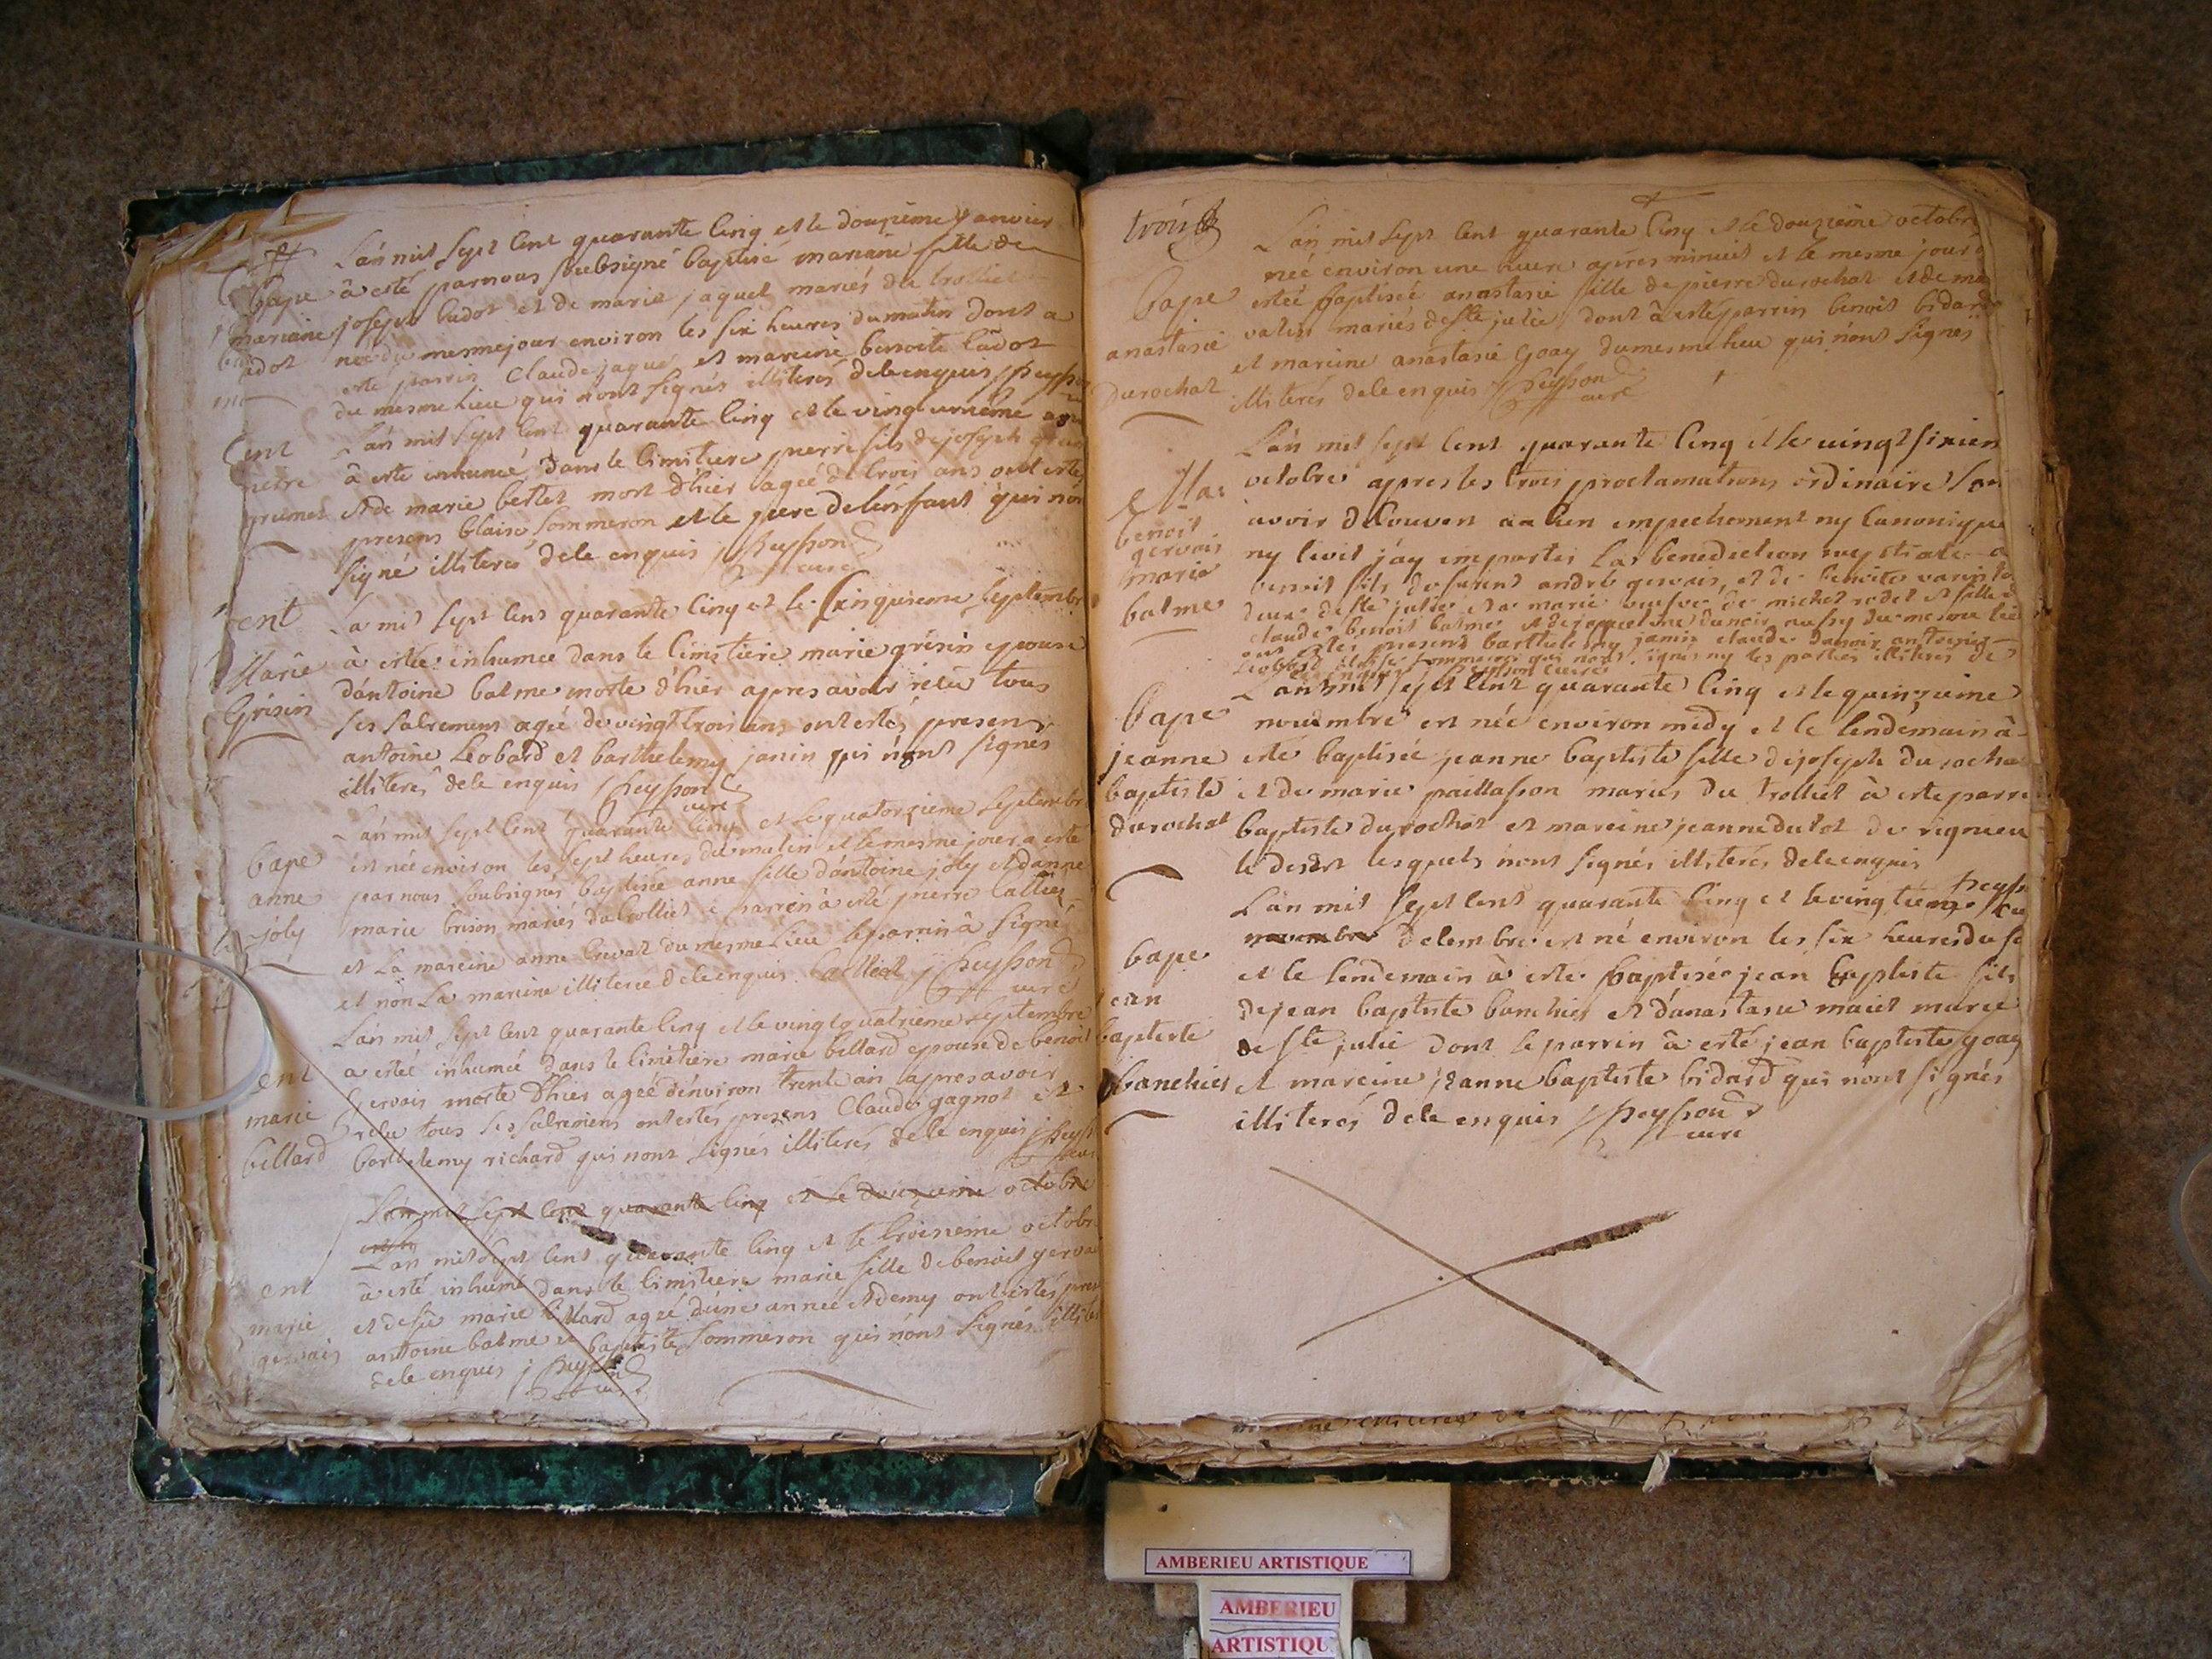 L'an mil sept cent quarante cinq et le douzième janvier
bape à esté par nous soubsigné baptisé mariane fille de
mariane joseph cudot et de marie jaquet mariés de trolliet
cudot née du mesme jour environ les six heures du matin dont a
esté parrin claude jaquet et mareine benoite cudot
du mesme lieu qui n'ont signés illiterés de ce enquis / peysson
L'an mil sept cent quarante cinq et le vingt unième
ent à esté inhumé dans le cimitiere pierre fils de joseph
pierre et de marie bertet mort d'hier agée de trois ans ont estés
presens blaise sommeron et le pere de l'enfant qui n'on
signé illiterés de ce enquis / peysson
curé
ent La mil sept cent quarante cinq et le cinquieme septembre
Marie à estée inhumee dans le cimitiere marie grisin epouse
Grisin d'antoine balme morte d'hier apres avoir recu tous
ses sacremens agée de vingt trois ans ont estés presens
antoine Leobard et barthelemy janin qui n'ont signés
illiterés de ce enquis / peysson
curé
L'an mil sept cent quarante cinq et le quatorzieme septembre
bape est née environ les sept heures du matin et le mesme jour a esté
anne par nous soubsigné baptisée anne fille d'antoine joly et d'anne
joly marie brison mariés du trolliet le parrin à esté pierre
et la mareine anne du mesme lieu le parrin à signé
et non la mareine illiterée de ce enquis / peysson
curé
L'an mil sept cent quarante cinq et le vingt quatrieme septembre
ent a estée inhumée dans le cimitiere marie billard epouse de benoit
marie gervais morte d'hier agée d'environ trente an apres avoir
billard recu tous ses sacremens ont estés presens claude gagnot et
barthelemy richard qui n'ont signés illiterés de ce enquis / peysson
curé
L'an mil sept cent quarante cinq et le douzieme octobre
L'an mil sept cent quarante cinq et le troisieme octobre
ent à esté inhumé dans le cimitiere marie fille de benoit gervai
marie et de feu marie billard agée d'une année et demy ont estés pres
gervais antoine balme et baptiste sommeron qui n'ont signés illite
de ce enquis / peysson
curé
trois
L'an mil sept cent quarante cinq et le douzieme octobre
neé environ une heure apres minuit et le mesme jour
bape estée baptiseé anastasie fille de pierre durochat et de ma
anastasie mariés de ste julie dont à esté parrin benoit bidard
durochat et mareine anastasie goay du mesme lieu qui n'ont signés
illiterés de ce enquis / peysson
curé
L'an mil sept cent quarante cinq et le vingt sixien
Ma: octobre apres les trois proclamations ordinaire san
benoit avoir decouvert aucun empechement ny canonique
gervais ny civil j'ay impartis la benediction nuptiale a
marie benoit fils de furent andré gervais, et de benoite
balme deux de ste julie et a marie veufve de michel rodet et fille
claude benoit balme et de jaqueline dunoir aussy du mesme lieu
ont estés presens barthelemy janin claude dunoir antoine
Leobard blaise sommeron qui n'ont signés ny les parties illiteres de
ce enquis / peysson curé
bape L'an mil sept cent quarante cinq et le quinzieme
novembre est née environ midy et le lendemain à
jeanne esté baptisee jeanne baptiste fille de joseph durocha
baptiste et de marie paillasson mariés du trolliet à esté parri
durochat baptiste durochat et mareine jeanne dulot de rigneu
le desert lesquels n'ont signés illiterés de ce enquis
peysson
L'an mil sept cent quarante cinq et le vingtieme cu
novembre decembre est né environ les six heures du so
bape et le lendemain à esté baptisée jean baptiste fils
jean de jean baptiste banchier et d'anastasie maret mariés
baptiste de ste julie dont le parrin à esté jean baptiste goay
banchier et mareine jeanne baptiste bidard qui n'ont signés
illiterés de ce enquis / peysson
curé
AMBERIEU ARTISTIQUE
AMBERIEU
ARTISTIQU